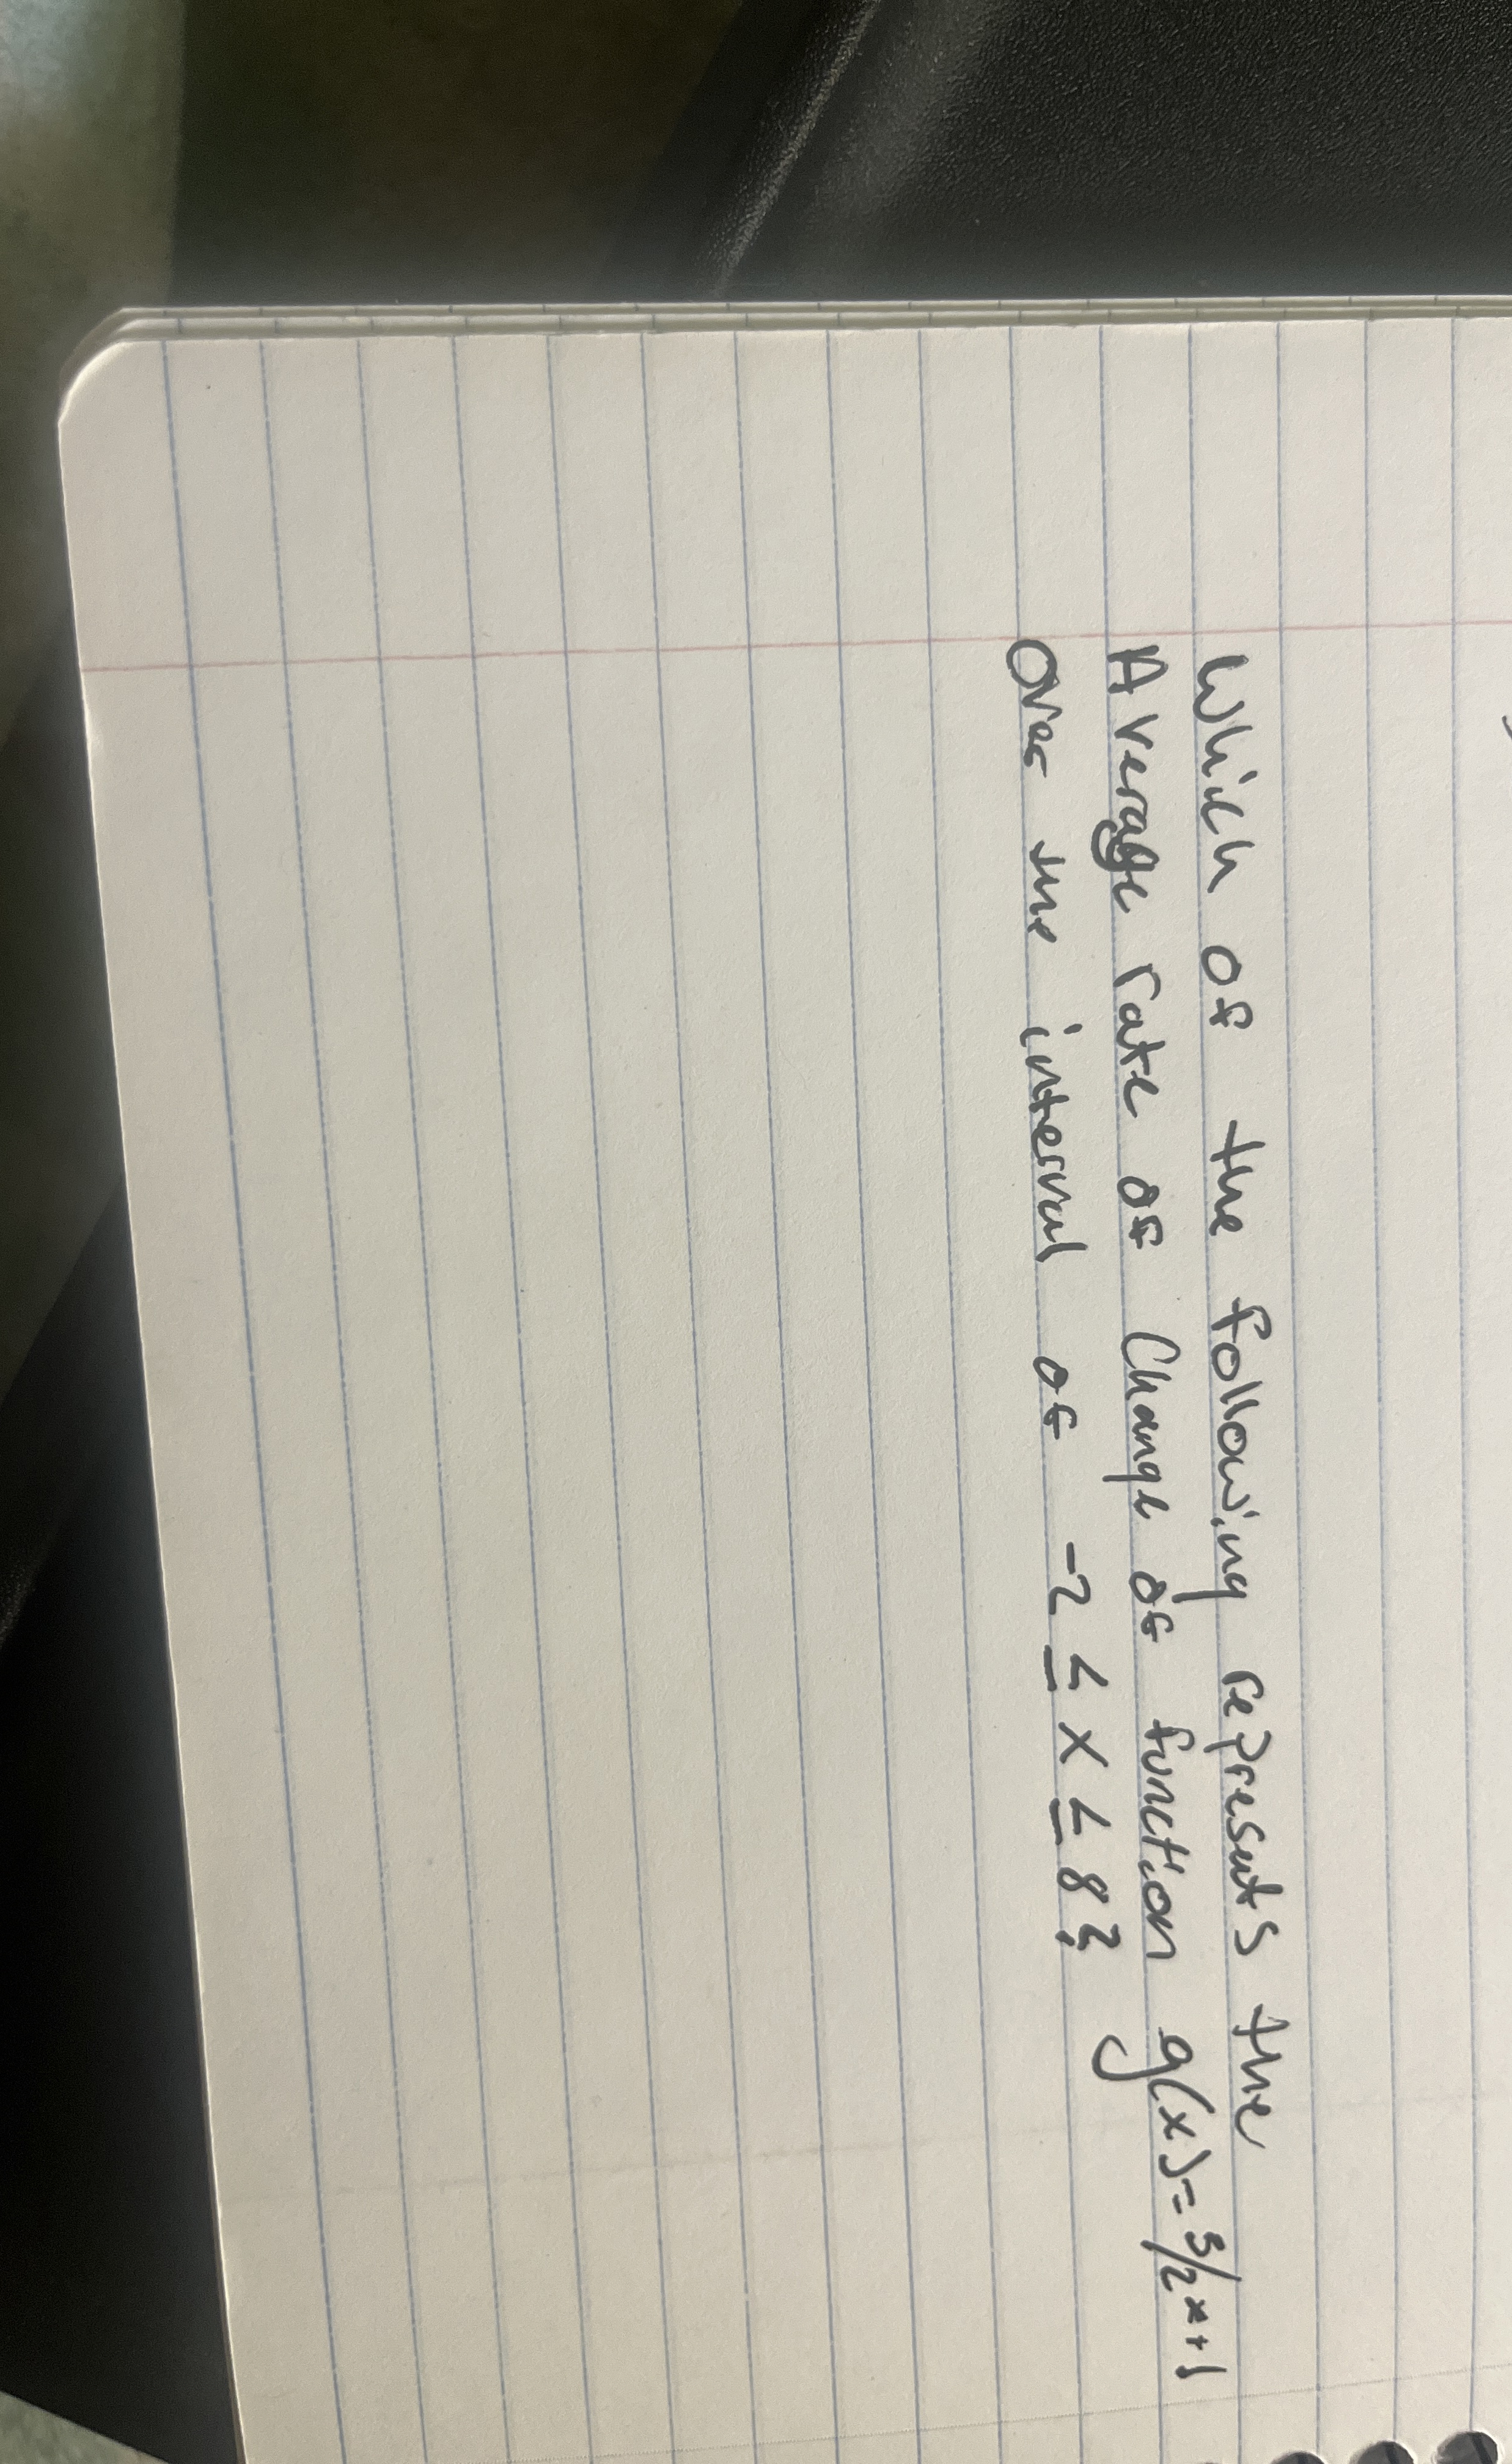 Which of the following represents the
Average rate of Change of function g(x)=3/2x+1
Over the interval of -2 ≤ x ≤ 8?